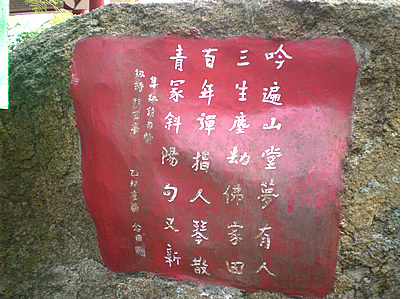 吟遍山堂夢有人
三生塵劫佛家因
百年彈指人琴散
青冢斜陽句又新